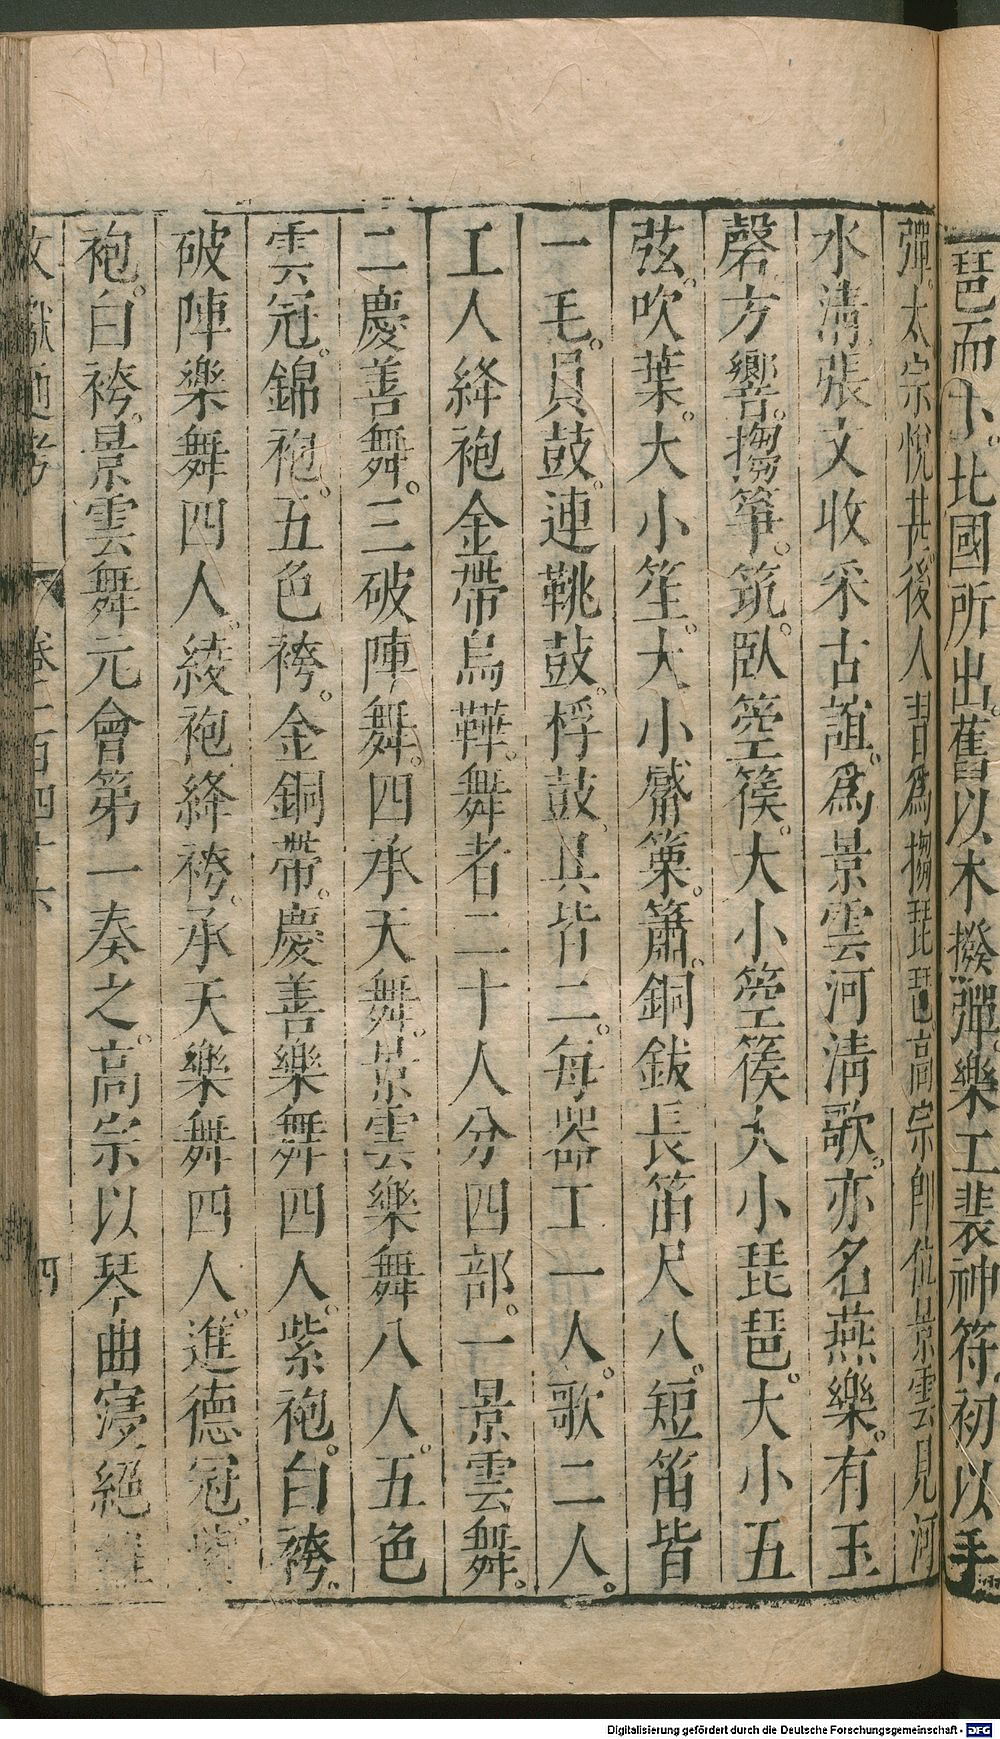 琶而小。北國所出。舊以木撥彈。樂工裴神符。初以手
彈。太宗悅甚。後人習爲搊琵琶。高宗即位景雲見河
水清張文收采古誼。爲景雲河清歌。亦名燕樂。有玉
磬方響。搊箏。筑。臥箜篌。大小箜篌大小琵琶。大小五
弦。吹葉。大小笙。大小觱篥。簫。銅鈸長笛尺八。短笛皆
一毛。員鼓。連鞉鼓。桴鼓。具皆二。每器工一人。歌二人。
工人絳袍金帶烏鞾。舞者二十人分四部。一景雲舞。
二慶善舞。三破陣舞。四承天舞。景雲樂舞八人。五色
雲冠。錦袍。五色袴。金銅帶。慶善樂舞四人。紫袍。白袴。
破陣樂舞四人。綾袍絳袴。承天樂舞四人。進德冠。紫
袍。白袴。景雲舞元會第一奏之。高宗以琴曲寖絕雖
文獻通考 卷一百四十六 四
Digitalisierung gefördert durch die Deutsche Forschungsgemeinschaft - DFG